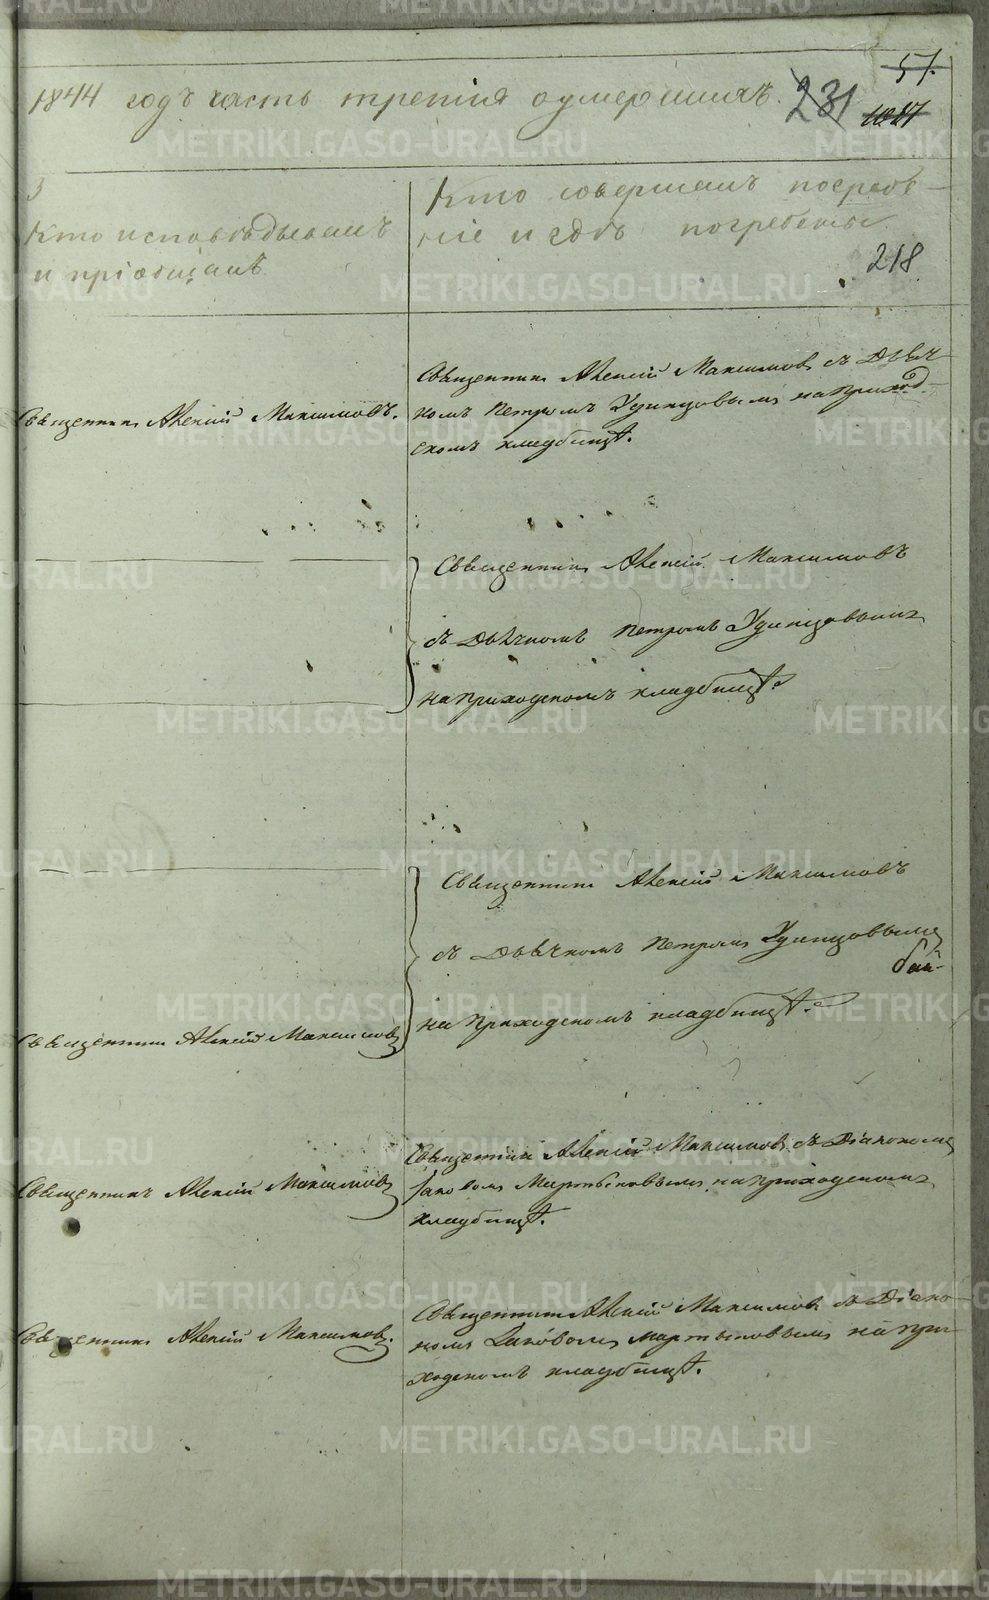 1844 годъ часть третія о умершихъ.
231
51.
1027
3
Кто исповѣдывалъ
и пріобщалъ
Кто совершалъ погребе-
ніе и гдѣ погребены
218
Священникъ Алексій Максимовъ.
Священникъ Алексій Максимовъ съ Дьяч-
комъ Петромъ Удинцовымъ на приход-
скомъ кладбищѣ.
Священникъ Алексій Максимовъ
съ Дьячкомъ Петромъ Удинцовымъ
на приходскомъ кладбищѣ.
Священникъ Алексій Максимовъ
съ Дьячкомъ Петромъ Удинцовымъ
на приходскомъ кладбищѣ.
Священникъ Алексій Максимовъ
Священникъ Алексій Максимовъ
Священникъ Алексій Максимовъ съ Діакономъ
Іаковомъ Мартыновымъ на приходскомъ
кладбищѣ.
Священникъ Алексій Максимовъ.
Священникъ Алексій Максимовъ съ Діако-
номъ Іаковомъ Мартыновымъ на при-
ходскомъ кладбищѣ.
METRIKI.GASO-URAL.RU